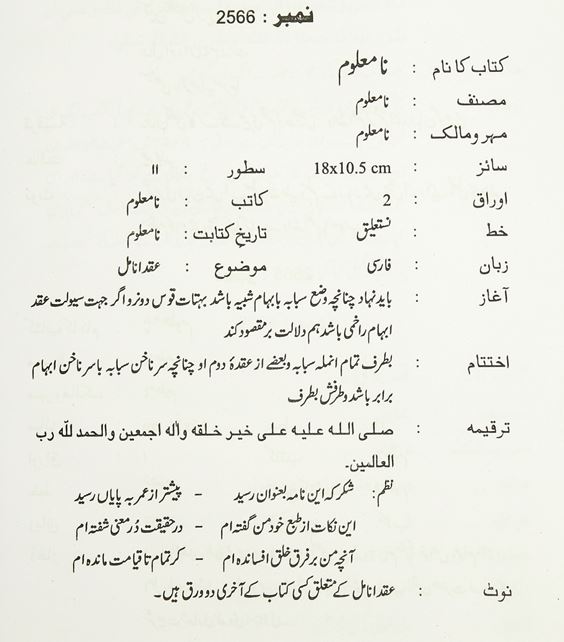 نمبر : 2566
کتاب کا نام : نامعلوم
مصنف : نامعلوم
مہر و مالک : نامعلوم
سائز : 18x10.5 cm سطور : ۱۱
اوراق : 2 کاتب : نامعلوم
خط : نستعلیق تاریخ کتابت : نامعلوم
زبان : فارسی موضوع : عقد انامل
آغاز : باید نہاد چنانچہ وضع سبابہ با بہام شبیہ باشد بہئات قوس دو نرو اگر جہت سیولت عقد
ابہام را خمی باشد ہم دلالت بر مقصود کند
اختتام : بطرف تمام انملہ سبابہ و بعضے از عقدۂ دوم او چنانچہ سر ناخن سبابہ با سر ناخن ابہام
برابر باشد و طرفش بطرف
ترقیمہ : صلی اللہ علیہ علی خیر خلقه وآله اجمعین والحمد للّٰه رب
العالمین۔
نظم: شکر کہ این نامہ بعنوان رسید - پیشتر از عمر بہ پایاں رسید
این نکات از طبع خود من گفتہ ام - در حقیقت دُر معنی شفتہ ام
آنچہ من بر فرق خلق افساندہ ام - کر تمام تا قیامت ماندہ ام
نوٹ : عقد انامل کے متعلق کسی کتاب کے آخری دو ورق ہیں۔